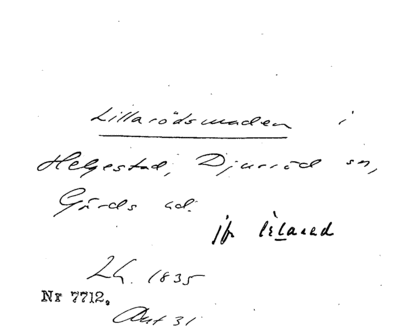 Lillarödsmaden i
Helgestad, Djurröd sn,
Gärds hd.
jfr
Lh. 1835
Nr 7712.
Akt 31